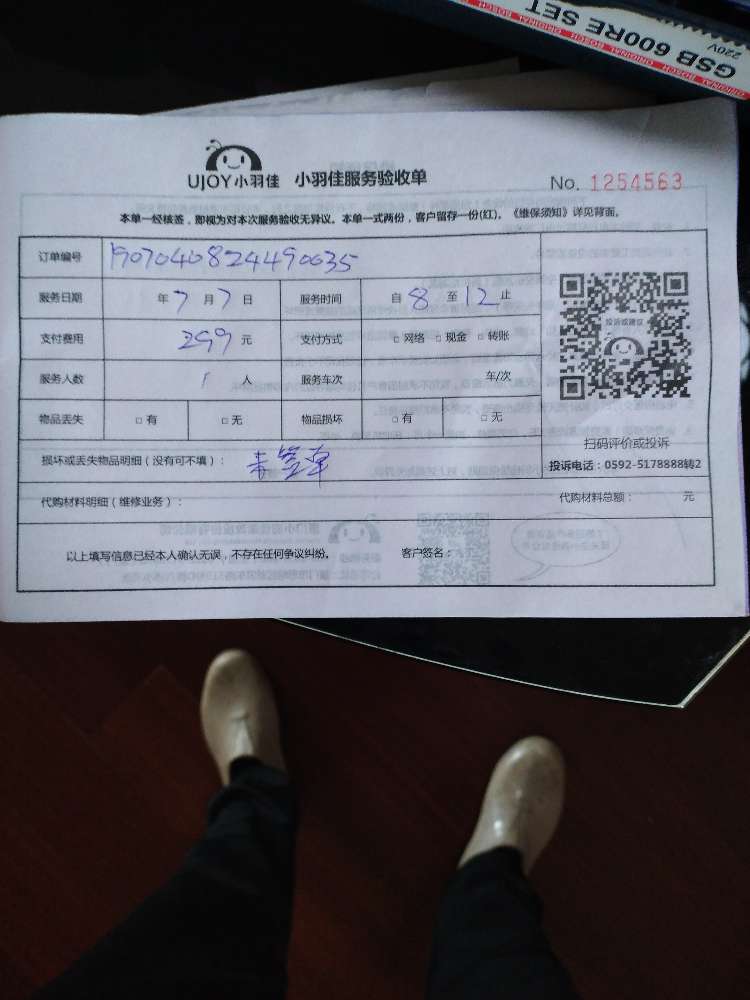 220V
GSB 600RE SET
ORIGINAL BOSCH ORIGINAL BOSCH
UJOY小羽佳 小羽佳服务验收单
No. 1254563
本单一经核签，即视为对本次服务验收无异议。本单一式两份，客户留存一份(红)。《维保须知》详见背面。
订单编号 1907040824490035
服务日期 年 7 月 7 日 服务时间 自 8 至 12 止
支付费用 299 元 支付方式 □ 网络 □ 现金 □ 转账
投诉或建议
服务人数 1 人 服务车次 车/次
物品丢失 □ 有 □ 无 物品损坏 □ 有 □ 无
扫码评价或投诉
损坏或丢失物品明细（没有可不填）： 未签单
投诉电话：0592-5178888转2
代购材料明细（维修业务）： 代购材料总额： 元
以上填写信息已经本人确认无误，不存在任何争议纠纷。 客户签名：